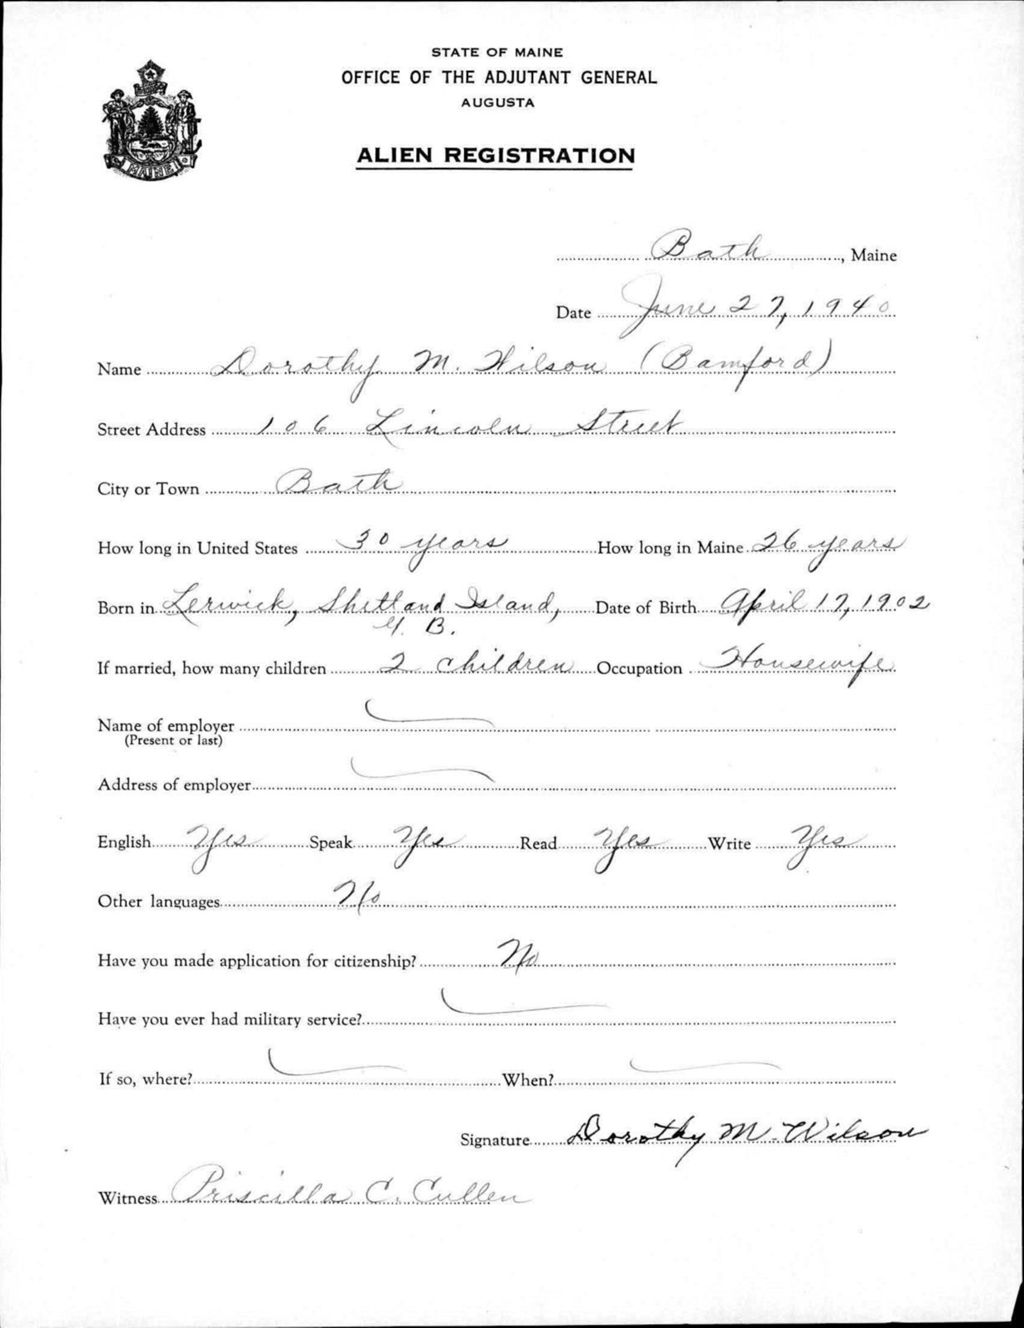 STATE OF MAINE
OFFICE OF THE ADJUTANT GENERAL
AUGUSTA
ALIEN REGISTRATION
MAINE
Bath, Maine
Date June 27, 1940
Name Dorothy M. Wilson (Bamford)
Street Address 106 Lincoln Street
City or Town Bath
How long in United States 30 years How long in Maine 26 years
Born in Lerwick, Shetland Island, Date of Birth April 17, 1902
G. B.
If married, how many children 2 children Occupation Housewife
Name of employer
(Present or last)
Address of employer
English Yes Speak Yes Read Yes Write Yes
Other languages No
Have you made application for citizenship? No
Have you ever had military service?
If so, where? When?
Signature Dorothy M. Wilson
Witness Priscilla C. Cullen